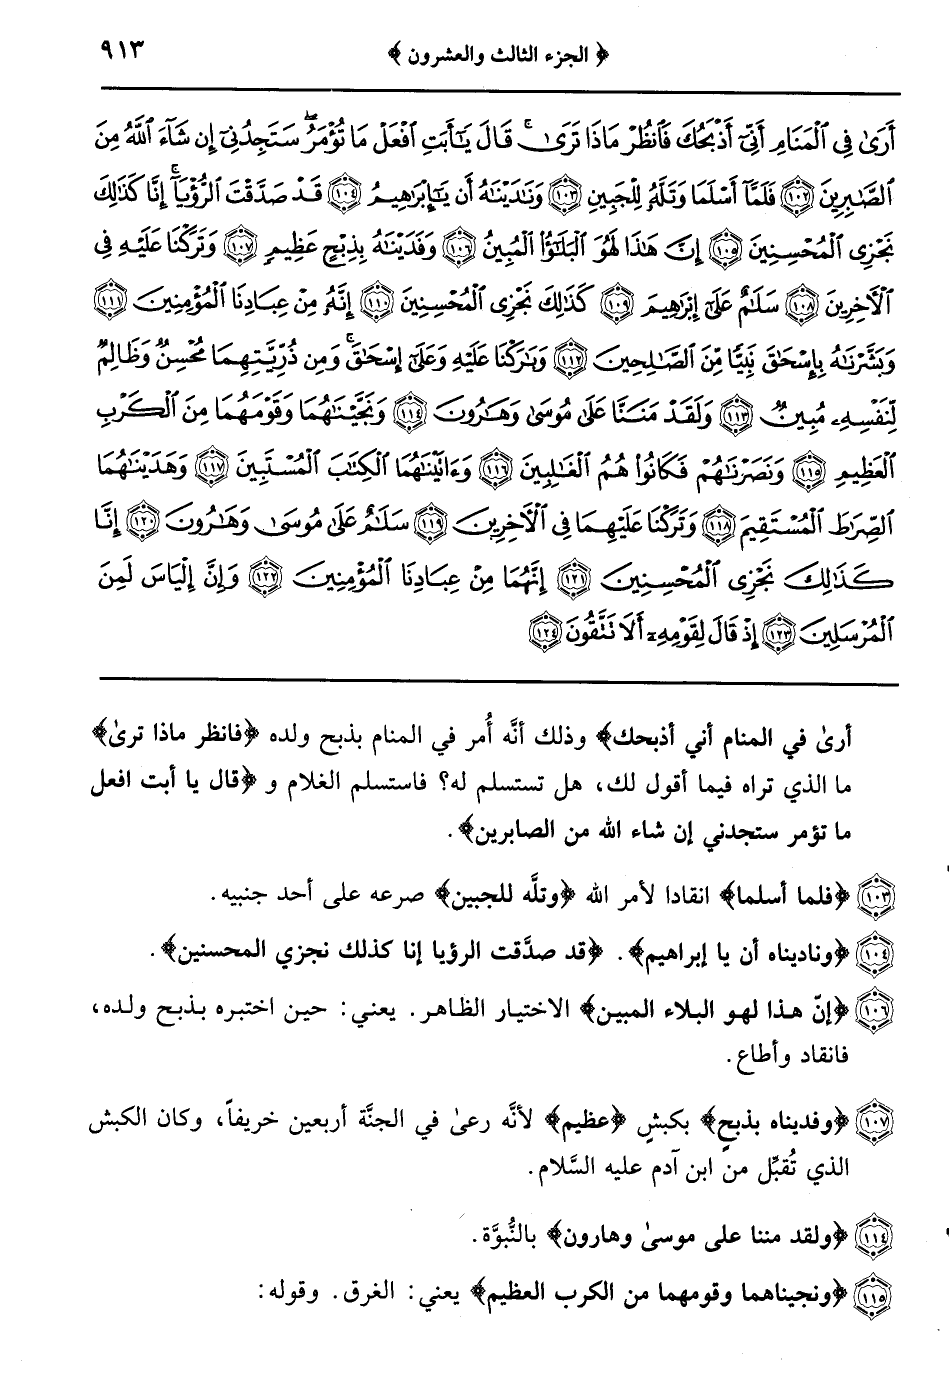 ﴿ الجزء الثالث والعشرون ﴾ ٩١٣
أَرَىٰ فِي ٱلْمَنَامِ أَنِّيٓ أَذْبَحُكَ فَٱنظُرْ مَاذَا تَرَىٰ ۚ قَالَ يَٰٓأَبَتِ ٱفْعَلْ مَا تُؤْمَرُ ۖ سَتَجِدُنِيٓ إِن شَآءَ ٱللَّهُ مِنَ
ٱلصَّٰبِرِينَ ١٠٢ فَلَمَّآ أَسْلَمَا وَتَلَّهُۥ لِلْجَبِينِ ١٠٣ وَنَٰدَيْنَٰهُ أَن يَٰٓإِبْرَٰهِيمُ ١٠٤ قَدْ صَدَّقْتَ ٱلرُّءْيَآ ۚ إِنَّا كَذَٰلِكَ
نَجْزِي ٱلْمُحْسِنِينَ ١٠٥ إِنَّ هَٰذَا لَهُوَ ٱلْبَلَٰٓؤُا۟ ٱلْمُبِينُ ١٠٦ وَفَدَيْنَٰهُ بِذِبْحٍ عَظِيمٍ ١٠٧ وَتَرَكْنَا عَلَيْهِ فِي
ٱلْءَاخِرِينَ ١٠٨ سَلَٰمٌ عَلَىٰٓ إِبْرَٰهِيمَ ١٠٩ كَذَٰلِكَ نَجْزِي ٱلْمُحْسِنِينَ ١١٠ إِنَّهُۥ مِنْ عِبَادِنَا ٱلْمُؤْمِنِينَ ١١١
وَبَشَّرْنَٰهُ بِإِسْحَٰقَ نَبِيًّا مِّنَ ٱلصَّٰلِحِينَ ١١٢ وَبَٰرَكْنَا عَلَيْهِ وَعَلَىٰٓ إِسْحَٰقَ ۚ وَمِن ذُرِّيَّتِهِمَا مُحْسِنٌ وَظَالِمٌ
لِّنَفْسِهِۦ مُبِينٌ ١١٣ وَلَقَدْ مَنَنَّا عَلَىٰ مُوسَىٰ وَهَٰرُونَ ١١٤ وَنَجَّيْنَٰهُمَا وَقَوْمَهُمَا مِنَ ٱلْكَرْبِ
ٱلْعَظِيمِ ١١٥ وَنَصَرْنَٰهُمْ فَكَانُوا۟ هُمُ ٱلْغَٰلِبِينَ ١١٦ وَءَاتَيْنَٰهُمَا ٱلْكِتَٰبَ ٱلْمُسْتَبِينَ ١١٧ وَهَدَيْنَٰهُمَا
ٱلصِّرَٰطَ ٱلْمُسْتَقِيمَ ١١٨ وَتَرَكْنَا عَلَيْهِمَا فِي ٱلْءَاخِرِينَ ١١٩ سَلَٰمٌ عَلَىٰ مُوسَىٰ وَهَٰرُونَ ١٢٠ إِنَّا
كَذَٰلِكَ نَجْزِي ٱلْمُحْسِنِينَ ١٢١ إِنَّهُمَا مِنْ عِبَادِنَا ٱلْمُؤْمِنِينَ ١٢٢ وَإِنَّ إِلْيَاسَ لَمِنَ
ٱلْمُرْسَلِينَ ١٢٣ إِذْ قَالَ لِقَوْمِهِۦٓ أَلَا تَتَّقُونَ ١٢٤
أرىٰ في المنام أني أذبحك﴾ وذلك أنَّه أُمر في المنام بذبح ولده ﴿فانظر ماذا ترىٰ﴾
ما الذي تراه فيما أقول لك، هل تستسلم له؟ فاستسلم الغلام و ﴿قال يا أبت افعل
ما تؤمر ستجدني إن شاء الله من الصابرين﴾.
١٠٣ ﴿فلما أسلما﴾ انقادا لأمر الله ﴿وتلَّه للجبين﴾ صرعه على أحد جنبيه.
١٠٤ ﴿وناديناه أن يا إبراهيم﴾. ﴿قد صدَّقت الرؤيا إنا كذلك نجزي المحسنين﴾.
١٠٦ ﴿إنّ هذا لهو البلاء المبين﴾ الاختيار الظاهر. يعني: حين اختبره بذبح ولده،
فانقاد وأطاع.
١٠٧ ﴿وفديناه بذبحٍ﴾ بكبشٍ ﴿عظيم﴾ لأنَّه رعىٰ في الجنَّة أربعين خريفاً، وكان الكبش
الذي تُقبِّل من ابن آدم عليه السَّلام.
١١٤ ﴿ولقد مننا على موسىٰ وهارون﴾ بالنُّبوَّة.
١١٥ ﴿ونجيناهما وقومهما من الكرب العظيم﴾ يعني: الغرق. وقوله: